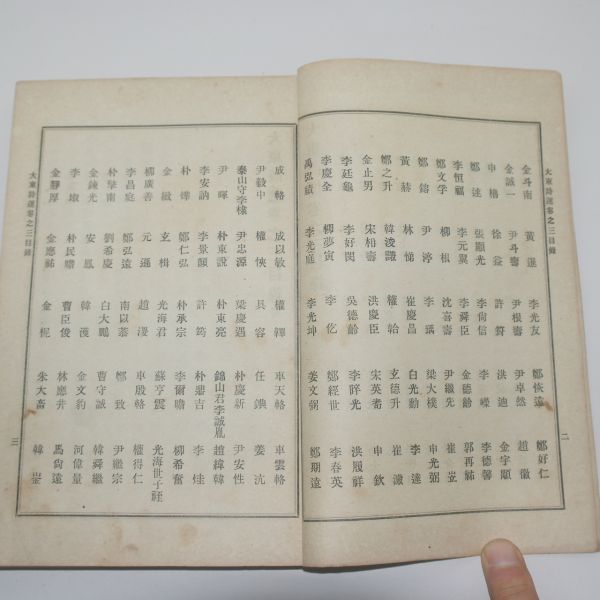 大東詩選卷之三目錄
金斗南 黃暹 李光友 鄭恢遠 鄭好仁
金誠一 尹斗壽 尹根壽 尹卓然 趙徽
申楷 徐益 許篈 洪迪 金宇顒
鄭逑 張顯光 李尙信 李嶸 李德馨
李恒福 李元翼 李舜臣 金德齡 郭再祐
鄭文孚 柳根 沈喜壽 尹繼先 崔岦
鄭鎔 尹渟 李瑀 梁大樸 申光弼
黃赫 林悌 崔慶昌 白光勳 李達
鄭之升 韓浚謙 權韐 玄德升 崔澱
金止男 宋柏壽 洪慶臣 宋英耇 申欽
李廷龜 李好閔 吳德齡 李睟光 洪履祥
李慶全 柳夢寅 李仡 鄭經世 李春英
馮弘績 李光庭 李光坤 姜文弼 鄭期遠
二
成輅 成以敏 權韠 車天輅 車雲輅
尹毅中 權悏 具容 任錪 姜沆
泰山守李棣 尹忠源 梁慶遇 朴慶新 尹安性
尹暉 朴東說 朴東亮 錦山君李誠胤 趙緯韓
李安訥 李景顏 許筠 朴瀰吉 李烓
朴燁 鄭仁弘 朴承宗 李爾瞻 柳希奮
金緻 玄楫 光海君 蘇亨震 光海世子祬
柳廣善 元遜 趙溭 車殷輅 權得仁
李昌庭 鄭弘遠 南以恭 鄭致 尹繼宗
朴擎南 劉希慶 白大鵬 曹守誠 韓舜繼
金鍊光 安鳳 韓濩 金文豹 河偉量
李墩 朴民瞻 曹臣俊 林應井 馬尙遠
金靜厚 金應祘 金柅 朱大畜 韓崟
大東詩選卷之三目錄
三